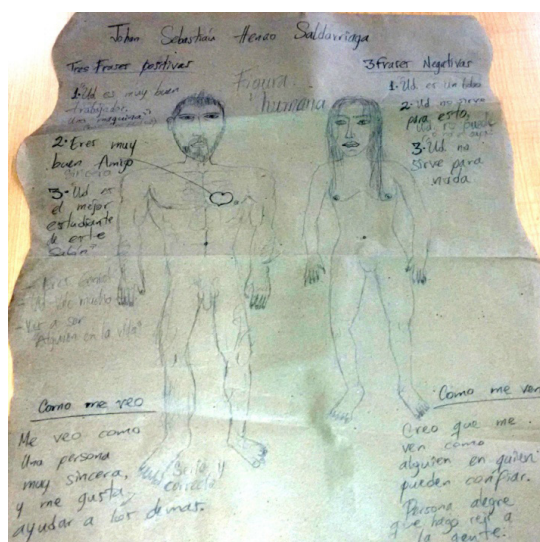 Johan Sebastián Henao Saldarriaga
Tres Frases positivas
1. Ud es muy buen
trabajador.
2. Eres muy
buen Amigo
sincero
3. Ud es
el mejor
estudiante
de este
Salón"
Vas a ser
"Alguien en la vida"
Figura
humana
3 Frases Negativas
1. Ud es un bobo
2. Ud no sirve
para esto,
Ud no puede
3. Ud no
sirve para
nada
Como me veo
Me veo como
Una persona
muy sincera,
y me gusta
ayudar a los demas.
Serio y
correcto
Como me ven
Creo que me
ven como
alguien en quien
pueden confiar.
Persona alegre
que hago reir a
la gente.